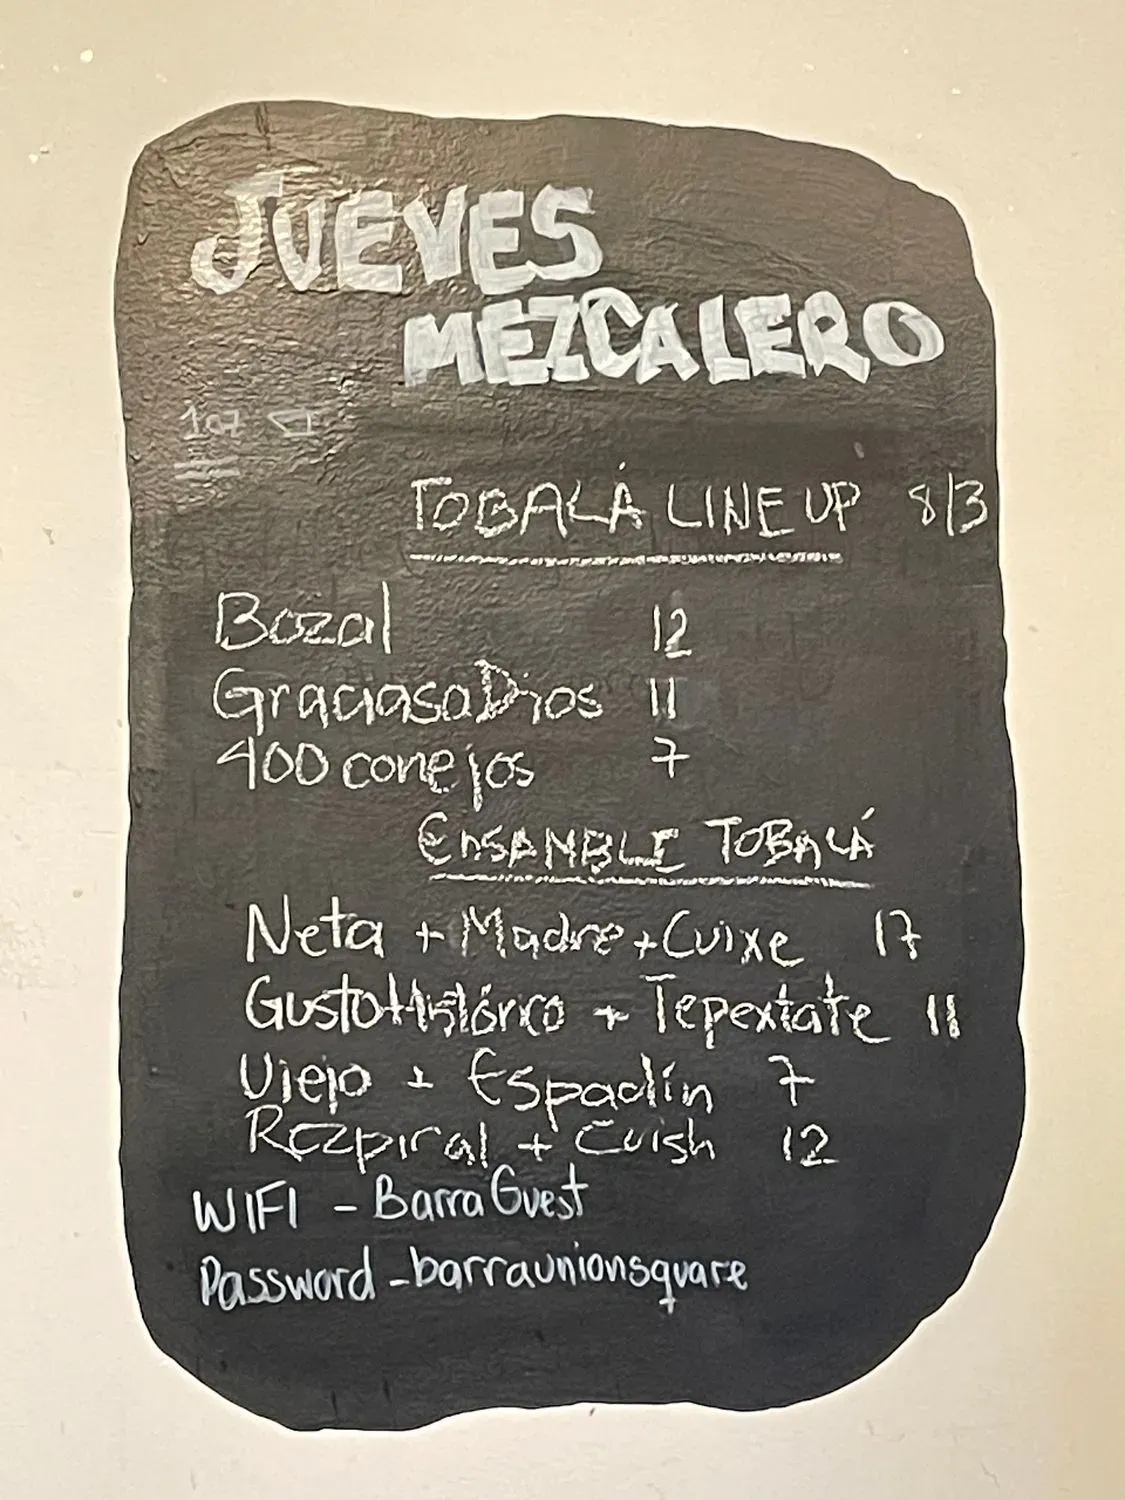 JUEVES
MEZCALERO
1oz
TOBALÁ LINE UP 8/3
Bozal 12
GraciasaDios 11
400 conejos 7
ENSAMBLE TOBALÁ
Neta + Madre + Cuixe 17
Gusto Histórico + Tepextate 11
Viejo + Espadín 7
Rezpiral + Cuish 12
WIFI - Barra Guest
Password - barraunionsquare